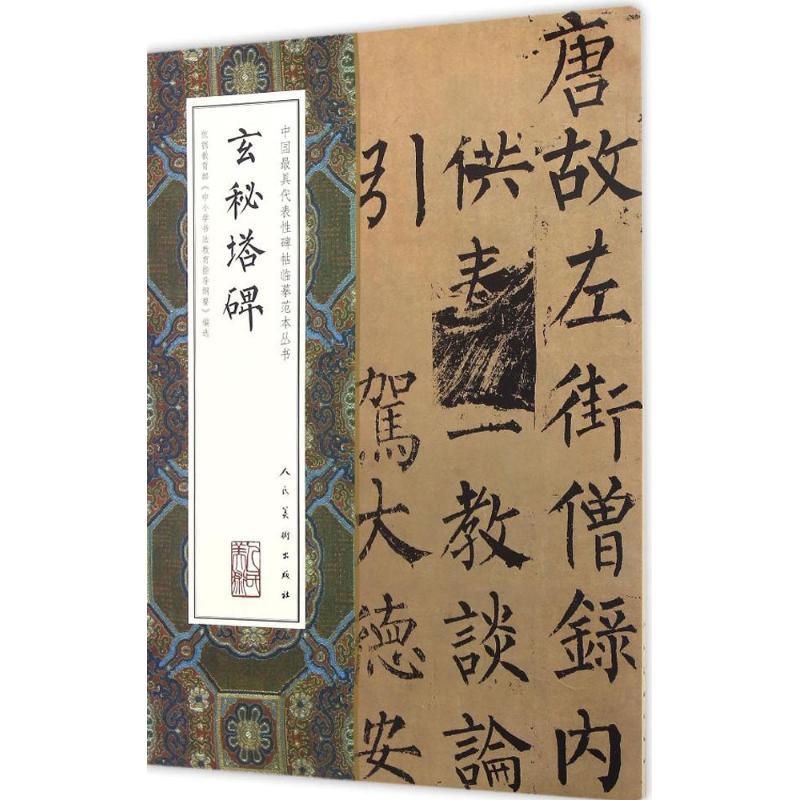 唐故左街僧錄內
供奉三教談論
引駕大德安
中国最具代表性碑帖临摹范本丛书
玄秘塔碑
依据教育部《中小学书法教育指导纲要》编选
人民美術出版社
人民美術